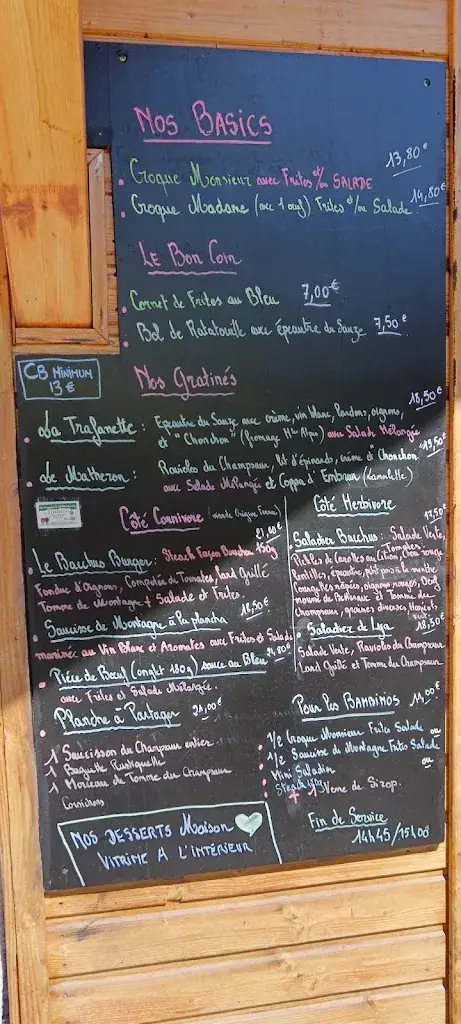 Nos BASICS
13,80€
Croque Monsieur avec Frites et/ou SALADE
14,80€
Croque Madame (avec 1 oeuf) Frites et/ou Salade
LE Bon Coin
Cornet de Frites au Bleu 7,00€
Bol de Ratatouille avec épeautre du Sauze 7,50€
CB MINIMUM
13 €
Nos Gratinés
18,50€
La Trafanette : Epeautre du Sauze avec crème, vin blanc, lardons, oignons,
et "Chonchon" (fromage Htes Alpes) avec Salade Mélangée
19,50€
Le Matheron : Ravioles du Champsaur, lit d'épinards, crème d'Chonchon
avec Salade Mélangée et Coppa d'Embrun
Côté Carnivore
21,80€
Le Bacchus Burger : Steack Façon Boucher 150g
Fondue d'Oignons, Compotée de Tomates, lard Grillé
Tomme de Montagne + Salade et Frites.
18,50€
Saucisse de Montagne à la plancha
marinée au Vin Blanc et Aromates avec Frites et Salade
24,80€
Pièce de Boeuf (onglet 180g) sauce au Bleu
avec Frites et Salade Mélangée.
Planche à Partager 21,00€
1 Saucisson du Champsaur entier
1 Baguette Rustique
1 Morceau de Tomme du Champsaur
Cornichons
NOS DESSERTS Maison
VITRINE A L'INTÉRIEUR
Côté Herbivore
17,50€
Saladier Bacchus : Salade Verte,
Tomates,
Pickles de Carottes au Citron, Chou rouge
lentilles, épeautre, petit pois à la menthe
courgettes rapées, oignons rouges,
et Tomme du
Champsaur, graines diverses, Haricots
verts
18,50€
Saladier de Lya
Salade Verte, Ravioles du Champsaur
Lard Grillé et Tomme du Champsaur
Pour les BAMBINOS 11,00€
1/2 Croque Monsieur Frites Salade ou
1/2 Saucisse de Montagne Frites Salade
ou
Mini Saladin
+ 1 Verre de Sirop.
Fin de Service
14h45/15h00